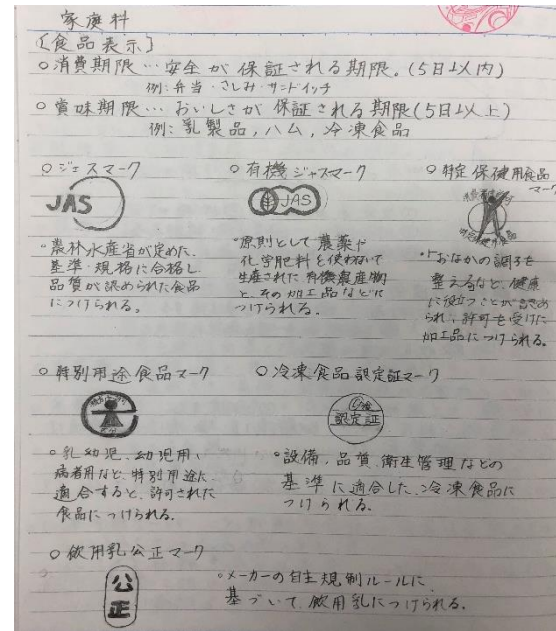 家庭科
〔食品表示〕
○消費期限…安全が保証される期限。(5日以内)
例:弁当・さしみ・サンドイッチ
○賞味期限…おいしさが保証される期限(5日以上)
例:乳製品,ハム,冷凍食品
○ジャスマーク
JAS
・農林水産省が定めた、
基準・規格に合格し
品質が認められた食品
につけられる。
○有機ジャスマーク
JAS
・原則として農薬や
化学肥料を使わないで
生産された有機農産物
と、その加工品などに
つけられる。
○特定保健用食品
マーク
・「おなかの調子を
整えるなど、健康
に役立つことが認め
られ、許可を受けた
加工品につけられる。
○特別用途食品マーク
・乳幼児、幼児用、
病者用など、特別用途に
適合すると、許可された
食品につけられる。
○冷凍食品認定証マーク
認定証
・設備、品質、衛生管理などの
基準に適合した、冷凍食品に
つけられる。
○飲用乳公正マーク
公正
・メーカーの自主規制ルールに
基づいて、飲用乳につけられる。